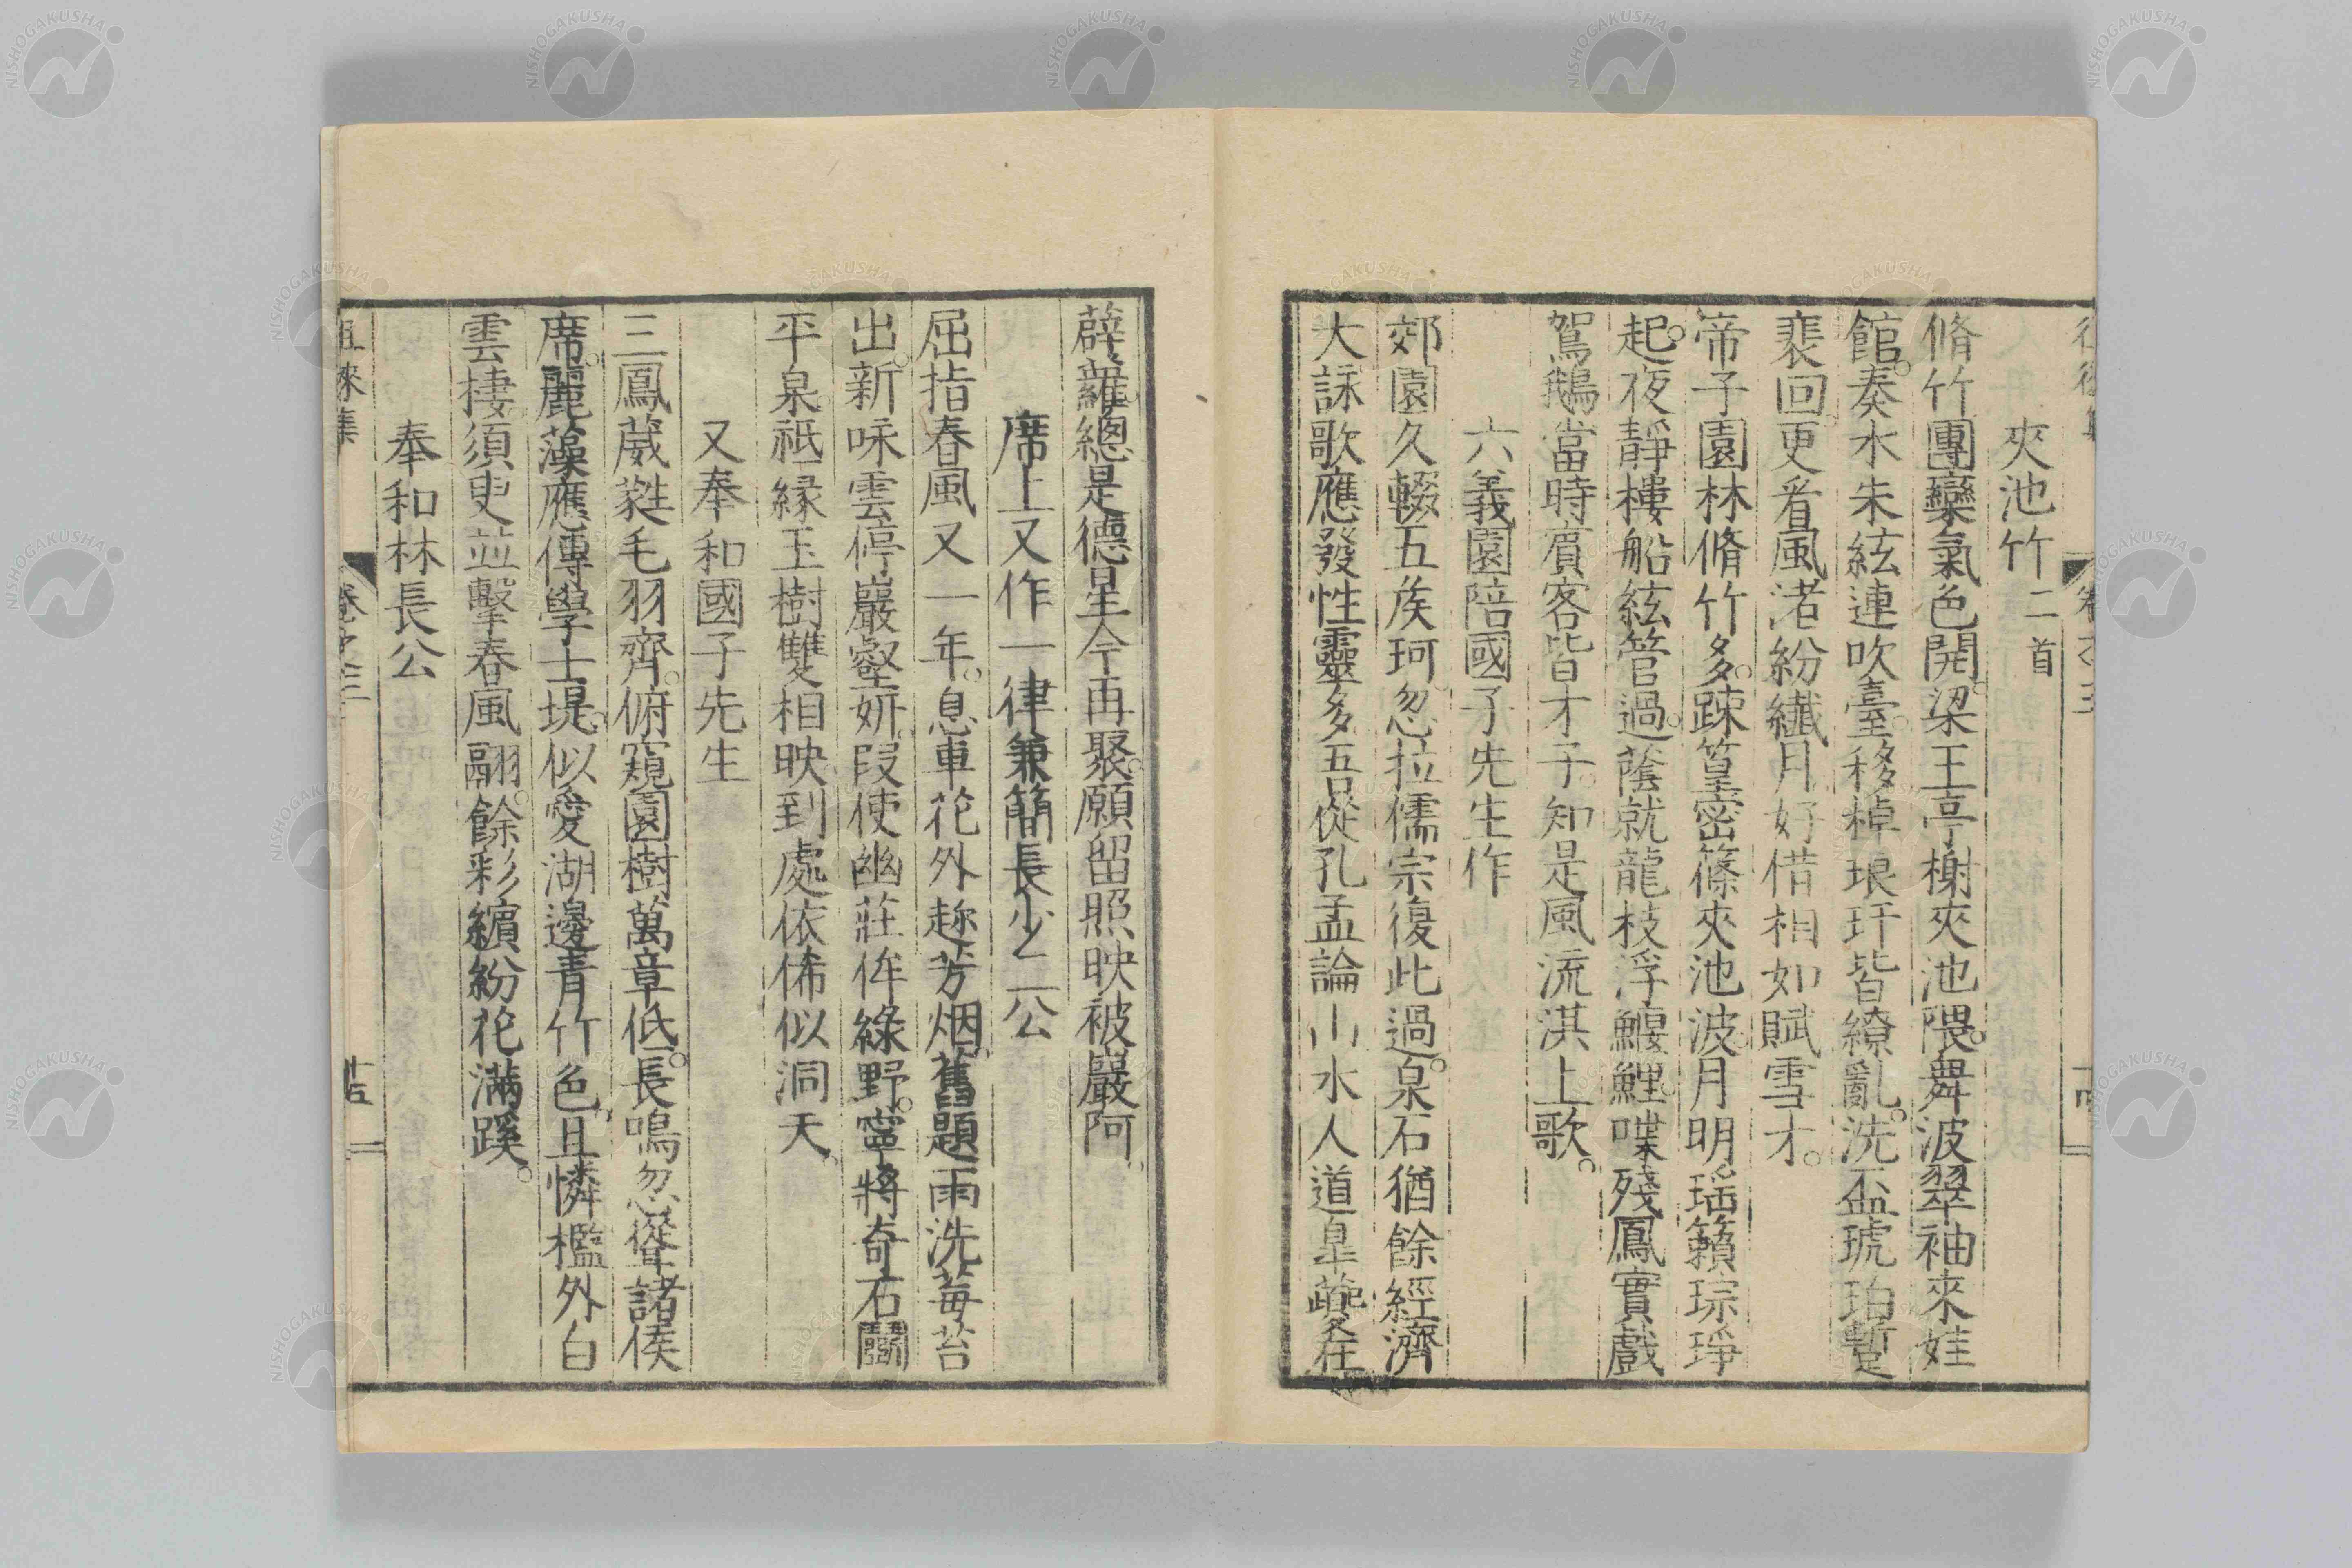 夾池竹二首
脩竹團欒氣色開。梁王亭榭夾池隈。舞波翠袖來娃
館。奏水朱絃連吹臺。移棹琅玕皆繚亂。洗盃琥珀暫
裴回。更看風渚紛纖月。好借相如賦雪才。
帝子園林脩竹多。踈篁密篠夾池波。月明瑶籟琮琤
起。夜靜樓船絃管過。蔭就龍枝浮鰋鯉。喋殘鳳實戲
鴛鵝。當時賓客皆才子。知是風流淇上歌。
六義園陪國子先生作
郊園久輟五侯珂。忽拉儒宗復此過。泉石猶餘經濟
大。詠歌應發性靈多。吾從孔孟論山水。人道皐夔在
薜蘿。總是德星今再聚。願留照映被巖阿。
席上又作一律兼簡長少二公
屈指春風又一年。息車花外趂芳烟。舊題雨洗莓苔
出。新咏雲停巖壑妍。叚使幽莊侔綠野。寧將奇石鬪
平泉。祇緣玉樹雙相映。到處依俙似洞天。
又奉和國子先生
三鳳葳蕤毛羽齊。俯窺園樹萬章低。長鳴忽聳諸侯
席。麗藻應傳學士堤。似愛湖邊青竹色。且憐檻外白
雲棲。須臾並擊春風翮。餘彩繽紛花滿蹊。
奉和林長公
徂徠集
卷之三
十五